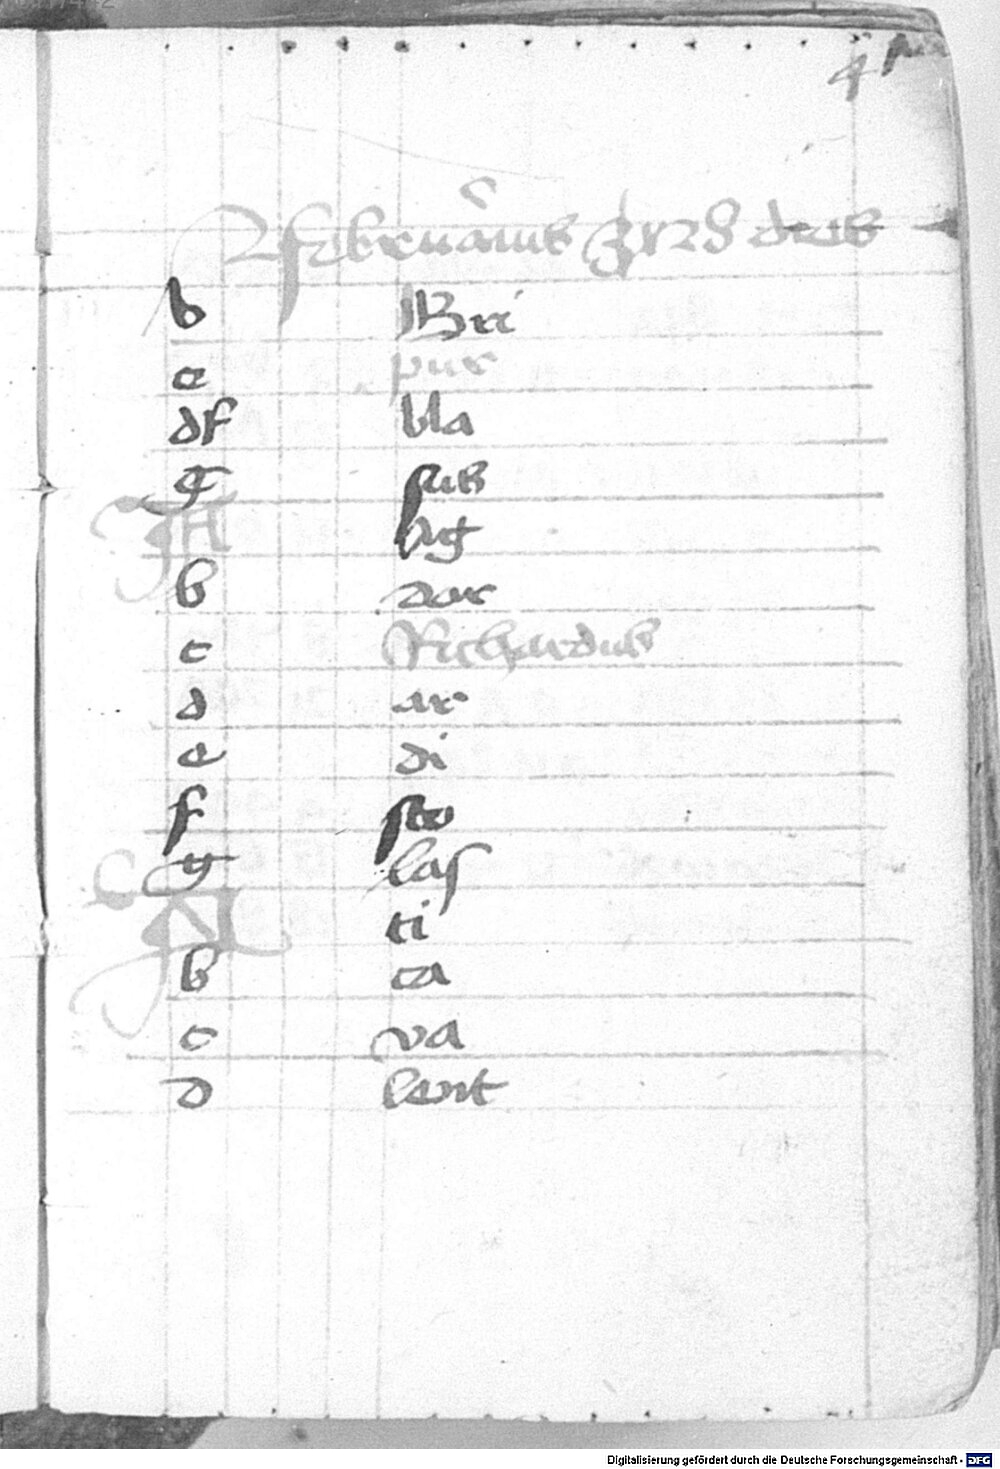 4
Februarius 28 dies
b Bri
c pur
d f bla
g sus
A Ag
b dor
c Richardus
d ar
e di
f sco
g las
A ti
b ca
c va
d lent
Digitalisierung gefördert durch die Deutsche Forschungsgemeinschaft - DFG